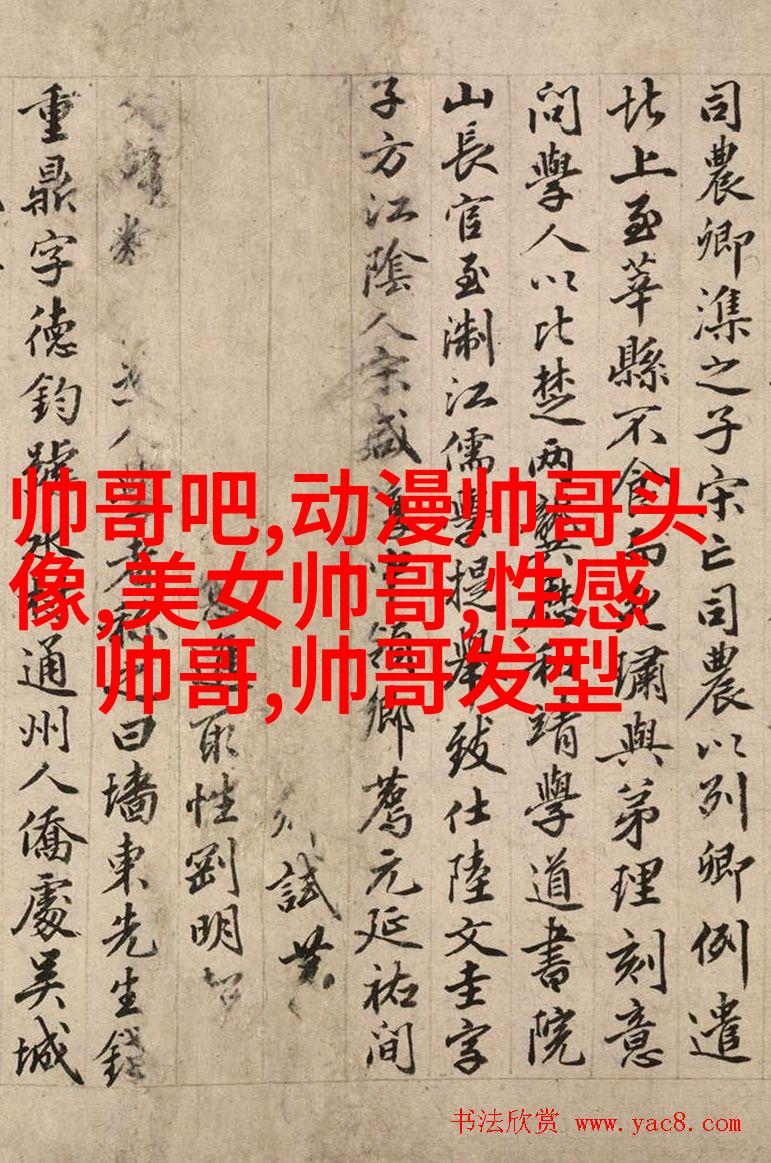 司農卿潗之子宋亡司農以列卿例遣
北上至莘縣不食而死璛與弟理刻意
問學人以比楚兩龔和靖學道書院
山長官至淛江儒學提舉致仕陸文圭字
子方江陰人宋咸領鄉薦元延祐間
試
性剛明
人稱之曰墻東先生錢
重鼎字德鈞號水村通州人僑處吳城
帅哥吧,动漫帅哥头
像,美女帅哥,性感
帅哥,帅哥发型
书法欣赏 www.yac8.com